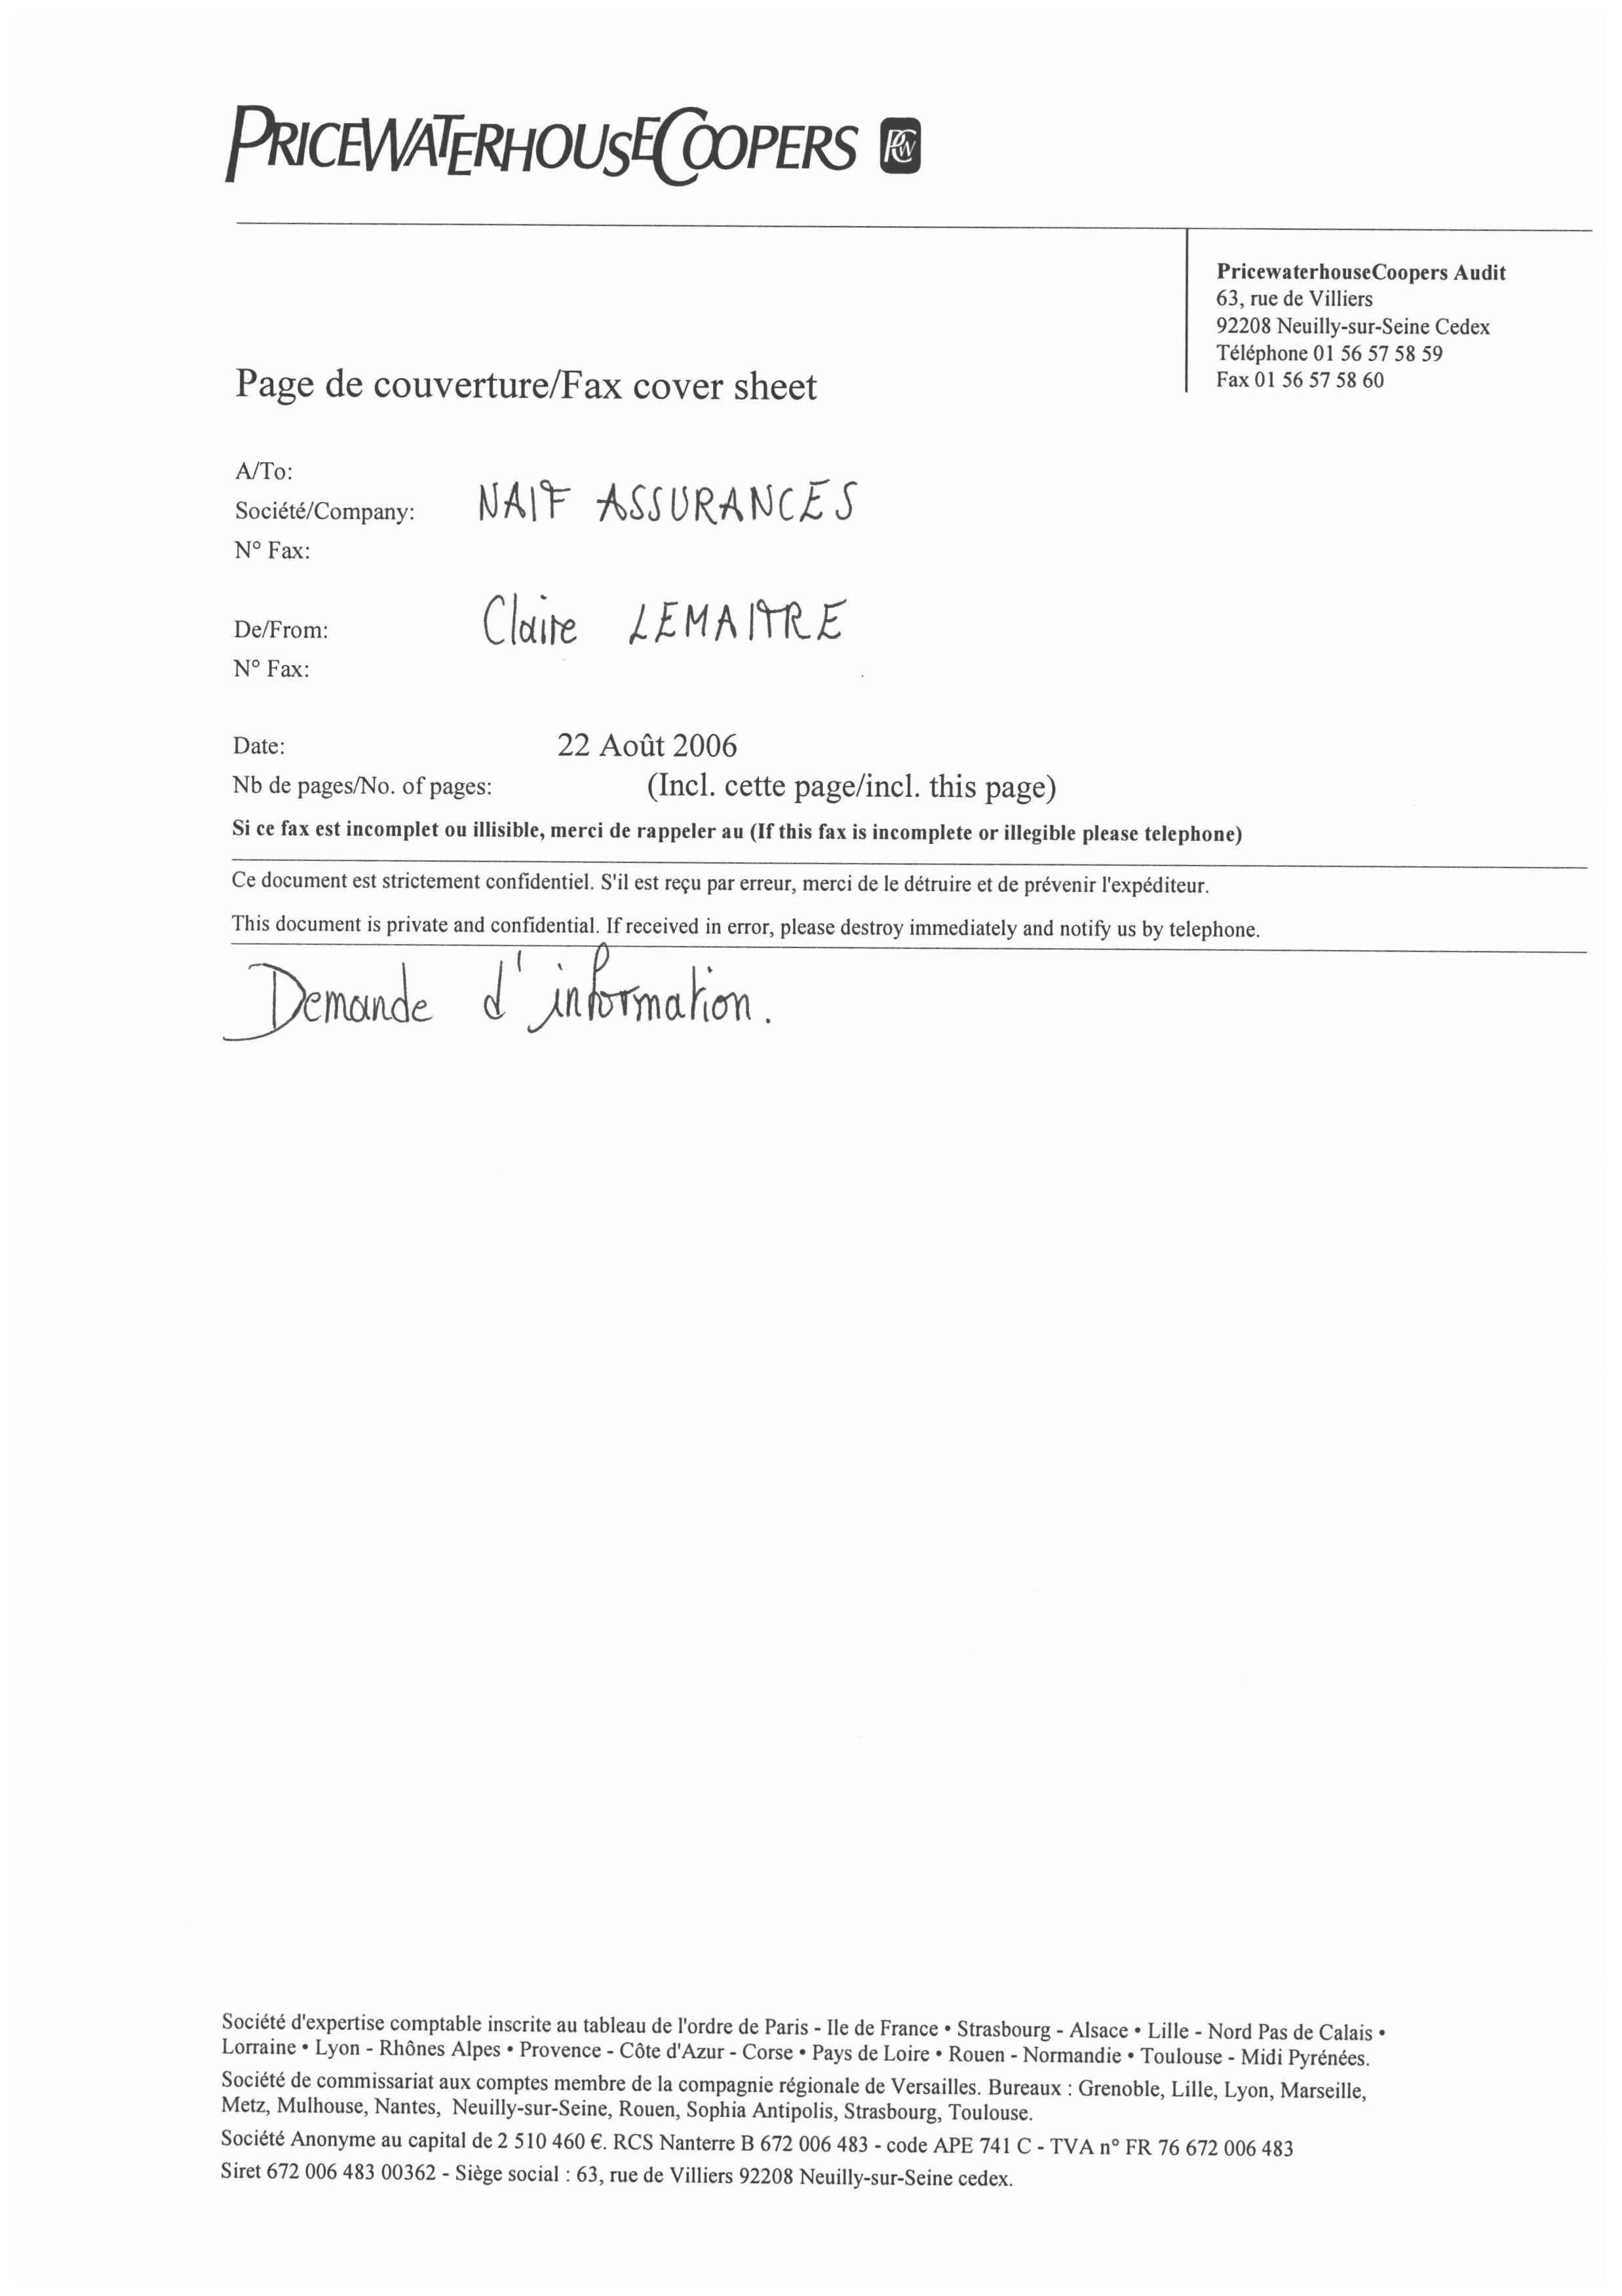 PRICEWATERHOUSECOOPERS PwC
PricewaterhouseCoopers Audit
63, rue de Villiers
92208 Neuilly-sur-Seine Cedex
Téléphone 01 56 57 58 59
Fax 01 56 57 58 60
Page de couverture/Fax cover sheet
A/To:
Société/Company: NAIF ASSURANCES
N° Fax:
De/From: Claire LEMAITRE
N° Fax:
Date: 22 Août 2006
Nb de pages/No. of pages: (Incl. cette page/incl. this page)
Si ce fax est incomplet ou illisible, merci de rappeler au (If this fax is incomplete or illegible please telephone)
Ce document est strictement confidentiel. S'il est reçu par erreur, merci de le détruire et de prévenir l'expéditeur.
This document is private and confidential. If received in error, please destroy immediately and notify us by telephone.
Demande d'information.
Société d'expertise comptable inscrite au tableau de l'ordre de Paris - Ile de France • Strasbourg - Alsace • Lille - Nord Pas de Calais •
Lorraine • Lyon - Rhônes Alpes • Provence - Côte d'Azur - Corse • Pays de Loire • Rouen - Normandie • Toulouse - Midi Pyrénées.
Société de commissariat aux comptes membre de la compagnie régionale de Versailles. Bureaux : Grenoble, Lille, Lyon, Marseille,
Metz, Mulhouse, Nantes, Neuilly-sur-Seine, Rouen, Sophia Antipolis, Strasbourg, Toulouse.
Société Anonyme au capital de 2 510 460 €. RCS Nanterre B 672 006 483 - code APE 741 C - TVA n° FR 76 672 006 483
Siret 672 006 483 00362 - Siège social : 63, rue de Villiers 92208 Neuilly-sur-Seine cedex.